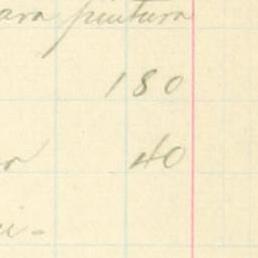 ara pintura
180
40